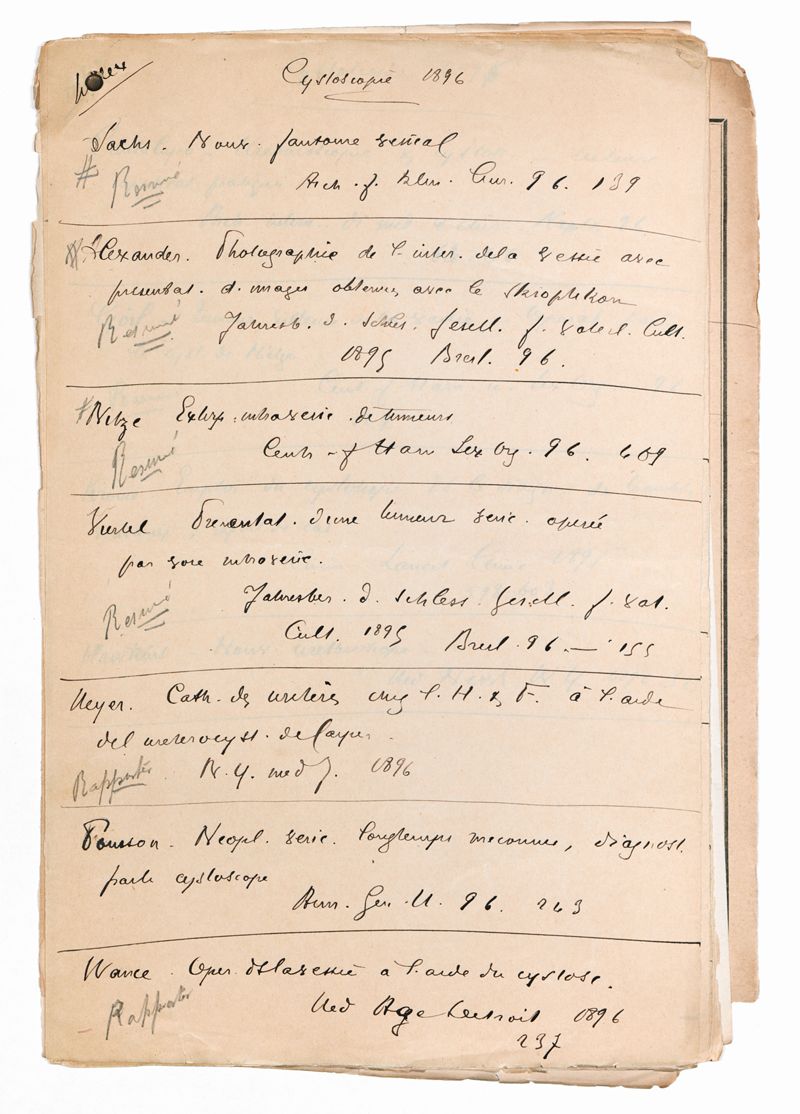 Cystoscopie 1896
Sachs. Nouv. fantome vesical
# Resumé Arch. f. klin. Chir. 96. 139
# Alexander. Photographie de l'inter. dela vessie avec
presentat. d. images obtenues avec le Skioptikon
Resumé Jahresb. d. Schles. Gesell. f. vaterl. Cult.
1895 Bresl. 96.
# Nitze Extirp. intravesic. de tumeurs
Resumé Centr. f. Harn Sex Org. 96. 609
Viertel Presentat. d'une tumeur vesic. operée
par voie intravesic.
Resumé Jahresber. d. Schless. Gesell. f. vat.
Cult. 1895 Bresl. 96. — 155
Meyer. Cath. des ureteres chez l. H. & F. à l'aide
del ureterocyst. de Casper.
Rapporter N. Y. med J. 1896
Pousson. Neopl. vesic. longtemps meconnu, diagnost.
par le cystoscope
Ann. Gen. U. 96. 243
Wance. Oper. de la vessie à l'aide du cystosc.
Rapporter Med Age Detroit 1896
237